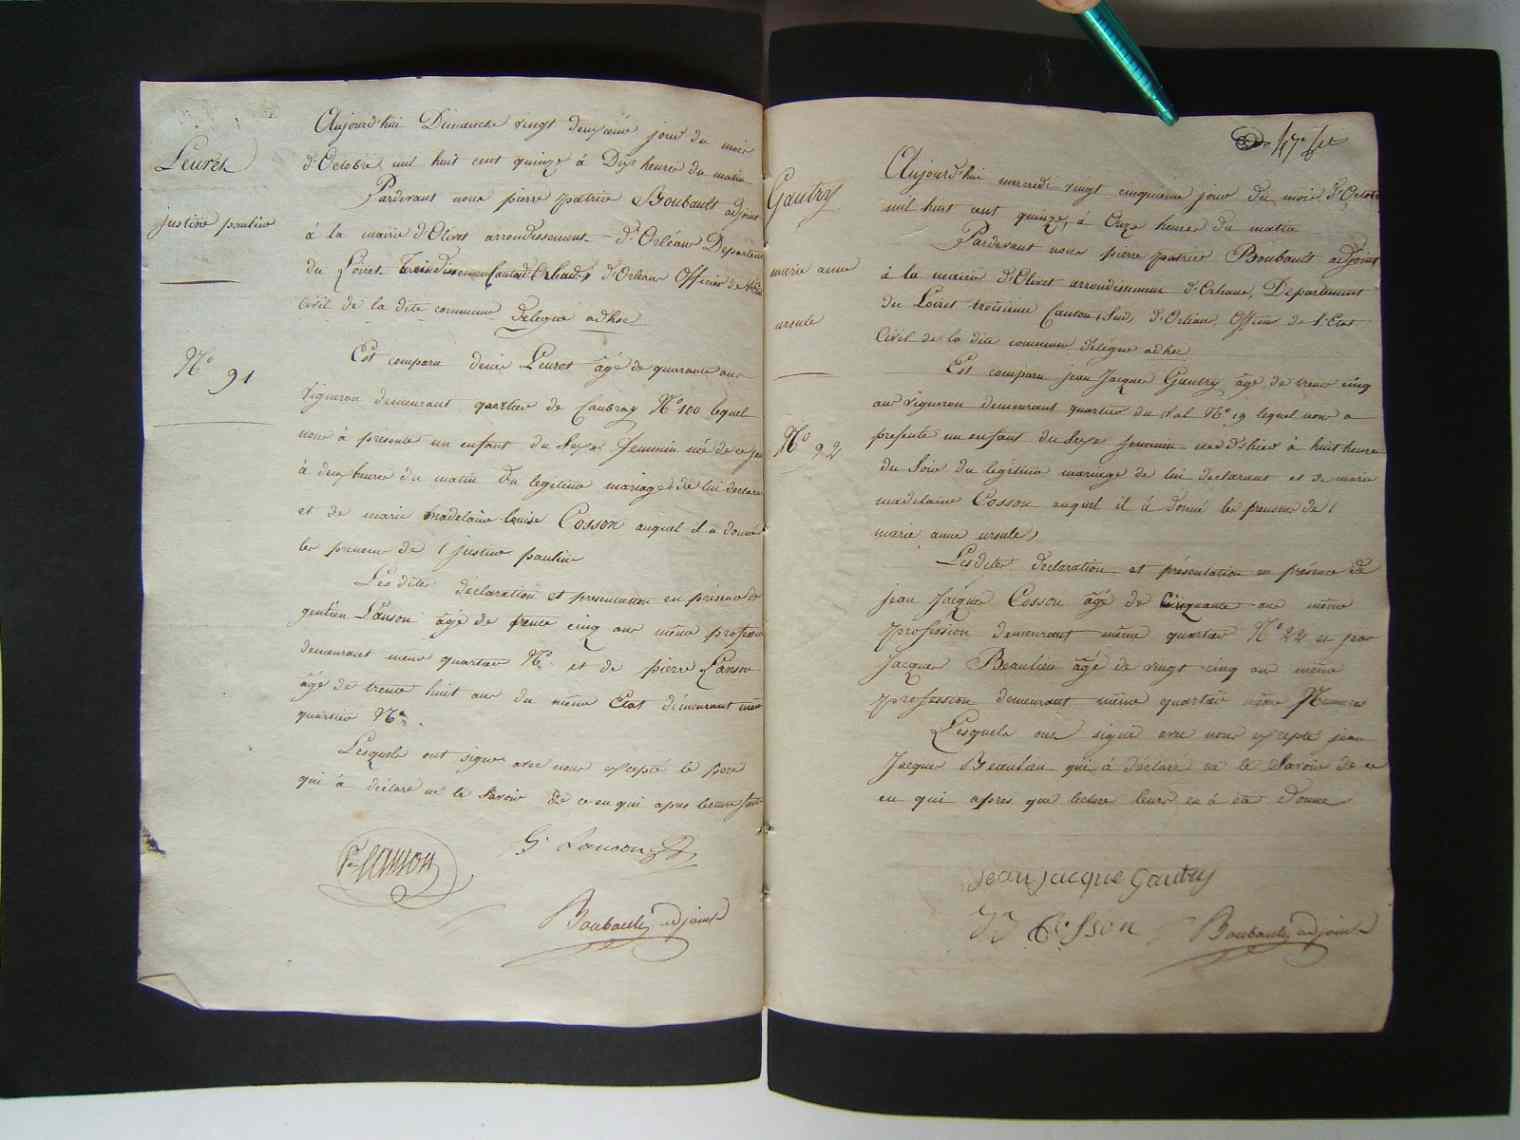 Leuret
justine pauline
N.o 91
Aujourd'hui Dimanche vingt deuxieme jour du mois
d'Octobre mil huit cent quinze à Dix heures du matin
Pardevant nous pierre patrice Boubault adjoint
à la mairie d'Olivet arrondissement d'Orléans Département
du Loiret d'Orleans Officier de
Civil de la dite commune délégué adhoc
Est comparu Leuret âgé de quarante ans
Vigneron demeurant quartier de Caubray N.o 100 lequel
nous à presenté un enfant du Sexe feminin née de ce jour
à deux heures du matin Du legitime mariage de lui declarant
et de marie madelaine louise Cosson auquel il a donné
les prenoms de justine pauline
Lesdites déclaration et presentation en présence de
gentien Lanson âgé de trente cinq ans même profession
demeurant même quartier N.o et de pierre Lanson
âgé de trente huit ans du même Etat demeurant même
quartier N.o
Lesquels ont signé avec nous excepté le pere
qui à déclaré ne le Savoir de ce enqui apres lecture
P.e Lanson
G. Lanson
Boubault adjoint
47.e
Gautry
marie anne
ursule
N.o 92
Aujourd'hui mercredi vingt cinquieme jour du mois d'Octobre
mil huit cent quinze, à Onze heures du matin
Pardevant nous pierre patrice Boubault adjoint
à la mairie d'Olivet arrondissement d'Orleans, Département
du Loiret troisieme Canton, Sud, d'Orléans Officier de l'Etat
Civil de la dite commune délégué adhoc
Est comparu jean Jacques Gautry âgé de trente cinq
ans vigneron demeurant quartier du Val N.o 19 lequel nous a
presenté un enfant du Sexe feminin née d'hier à huit heures
du Soir du légitime mariage de lui declarant et de marie
madelaine Cosson auquel il à donné les prenoms de
marie anne ursule
Lesdites declaration et présentation en présence de
jean Jacques Cosson âgé de Cinquante ans même
profession demeurant même quartier N.o 22 et par
Jacques Beaulieu âgé de vingt cinq ans même
profession demeurant même quartier même Numero
Lesquels ont signé avec nous excepté jean
Jacques Beaulieu qui à déclaré ne le Savoir de ce
en qui apres que lecture leurs en à été donné
Jean jacque gautry
JJ Cosson
Boubault adjoint